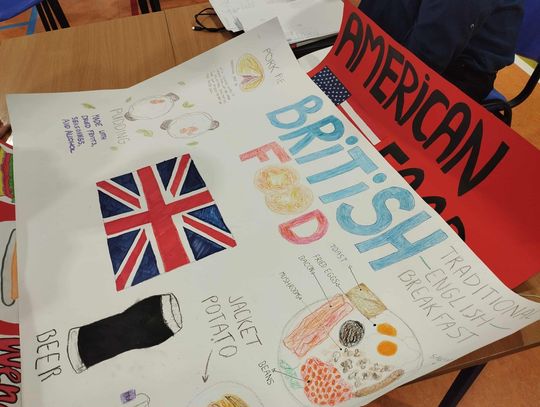 AMERICAN
FOOD
PORK PIE
BRITISH
FOOD
PUDDING
MADE WITH
DRIED FRUITS,
SEASONINGS,
AND ALCOHOL
TRADITIONAL
-ENGLISH-
BREAKFAST
TOAST
FRIED EGGS
BACON
MUSHROOMS
BEANS
JACKET
POTATO
BEER